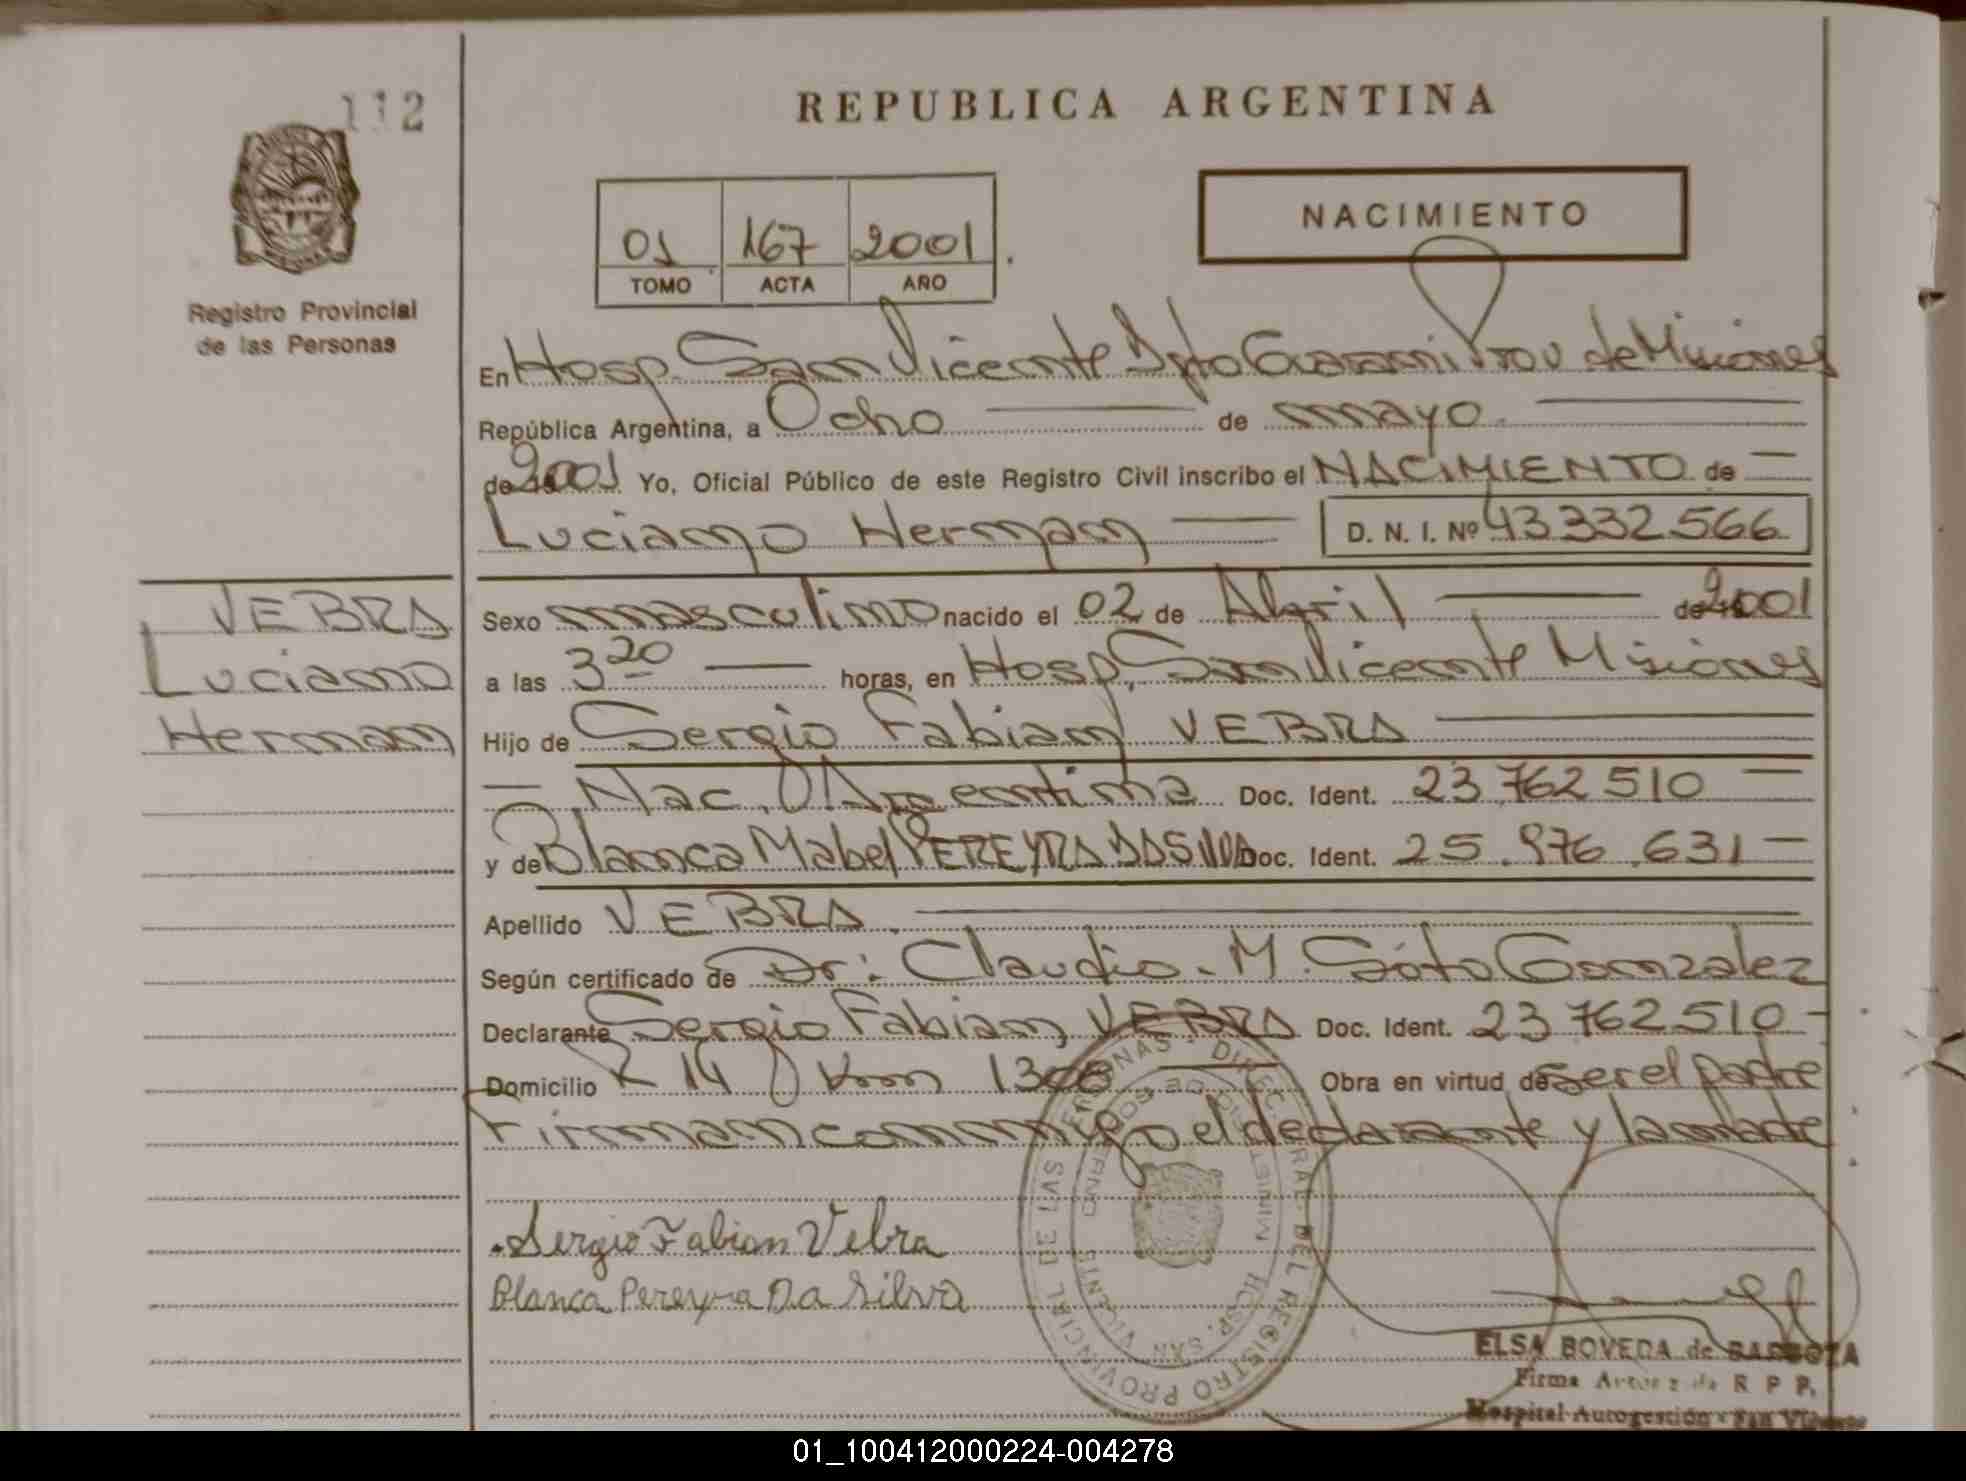 112
REPUBLICA ARGENTINA
01 167 2001
TOMO ACTA AÑO
NACIMIENTO
Registro Provincial
de las Personas
En Hosp. San Vicente Dpto Guarani Prov de Misiones
República Argentina, a Ocho de mayo
de 2001 Yo, Oficial Público de este Registro Civil inscribo el NACIMIENTO de
Luciano Hernan D. N. I. Nº 43332566
VEBRA
Luciano
Hernan
Sexo masculino nacido el 02 de Abril de 2001
a las 3 20 horas, en Hosp. San Vicente Misiones
Hijo de Sergio Fabian VEBRA
Nac. Argentina Doc. Ident. 23 762 510
y de Blanca Mabel PEREYRA DA SILVA Doc. Ident. 25.976.631
Apellido VEBRA
Según certificado de Dr. Claudio. M. Soto Gonzalez
Declarante Sergio Fabian VEBRA Doc. Ident. 23 762510
Domicilio R 14 Km 1308 Obra en virtud de ser el padre
Firman conmigo el declarante y la madre
Sergio Fabian Vebra
Blanca Pereyra Da Silva
DIREC. GRAL. DEL REGISTRO PROVINCIAL DE LAS PERSONAS
MINISTERIO DE GOBIERNO
HOSP. SAN VICENTE
ELSA BOVEDA de BARBOZA
Firma R P P.
Hospital Autogestión - San Vicente
01_100412000224-004278